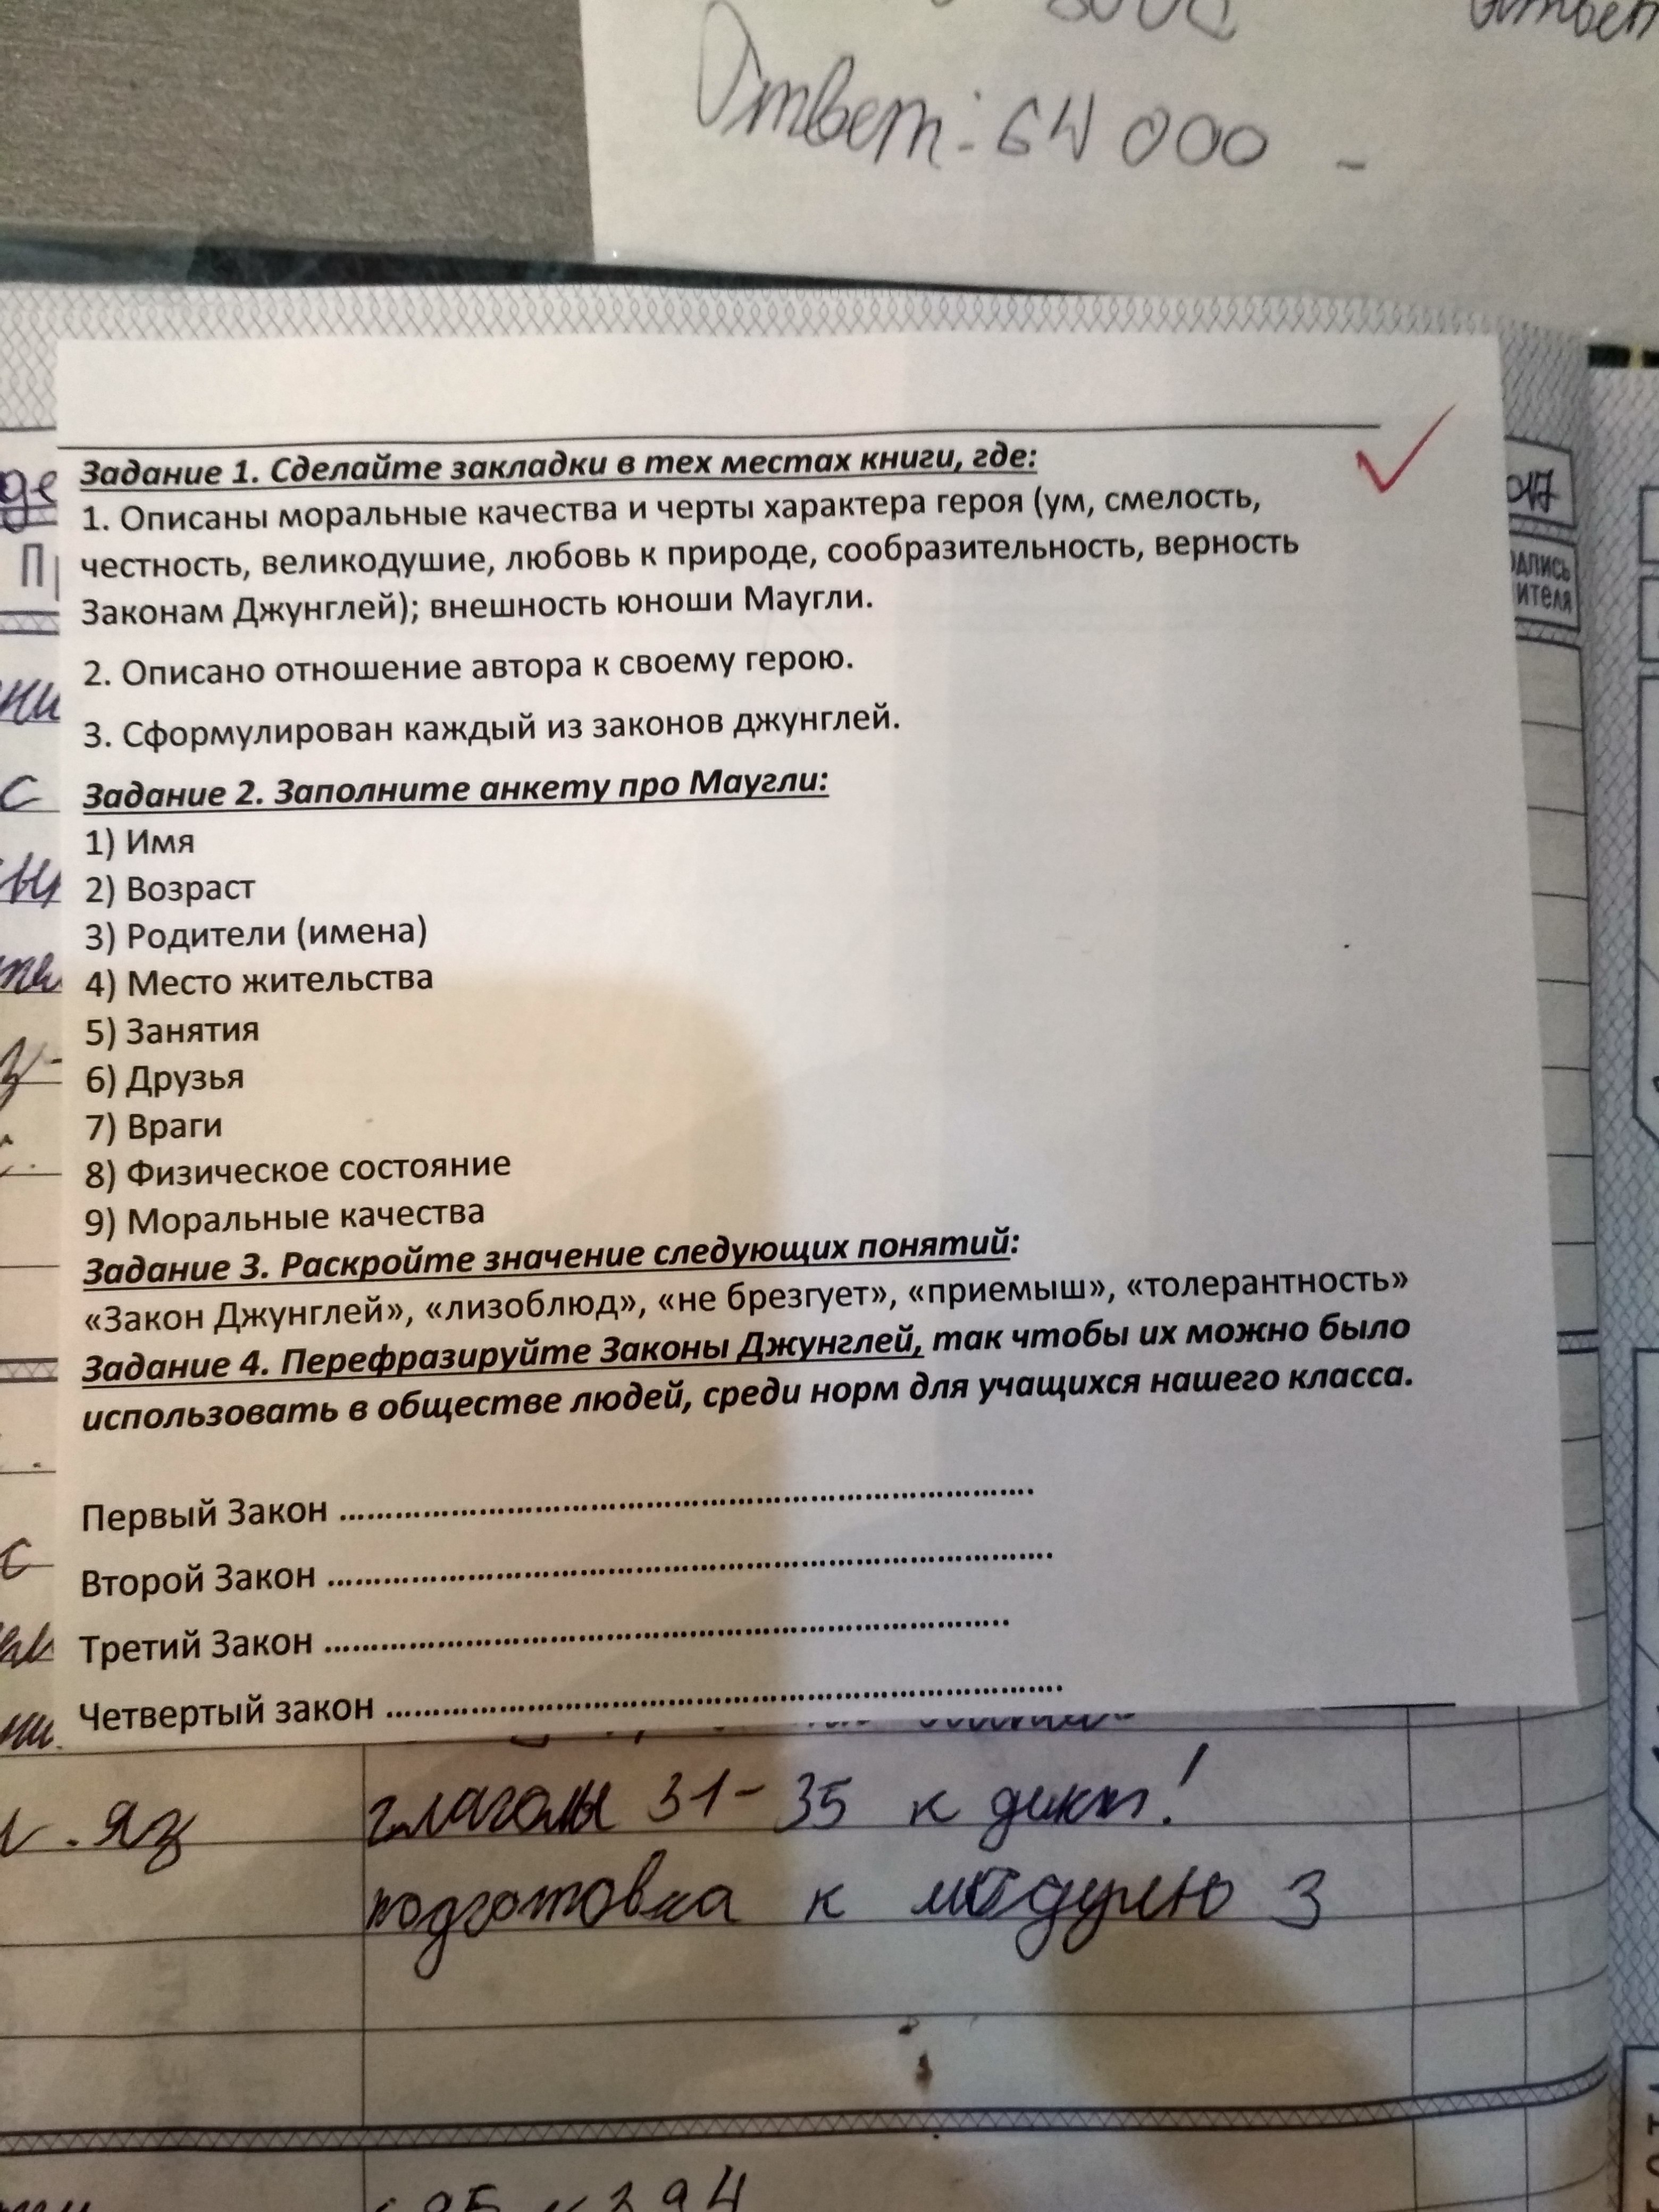 Ответ: 64 000
Задание 1. Сделайте закладки в тех местах книги, где:
1. Описаны моральные качества и черты характера героя (ум, смелость,
честность, великодушие, любовь к природе, сообразительность, верность
Законам Джунглей); внешность юноши Маугли.
2. Описано отношение автора к своему герою.
3. Сформулирован каждый из законов джунглей.
Задание 2. Заполните анкету про Маугли:
1) Имя
2) Возраст
3) Родители (имена)
4) Место жительства
5) Занятия
6) Друзья
7) Враги
8) Физическое состояние
9) Моральные качества
Задание 3. Раскройте значение следующих понятий:
«Закон Джунглей», «лизоблюд», «не брезгует», «приемыш», «толерантность»
Задание 4. Перефразируйте Законы Джунглей, так чтобы их можно было
использовать в обществе людей, среди норм для учащихся нашего класса.
Первый Закон ...........................................................................
Второй Закон ...........................................................................
Третий Закон ...........................................................................
Четвертый закон ...........................................................................
яз глаголы 31-35 к дикт!
подготовка к модулю 3